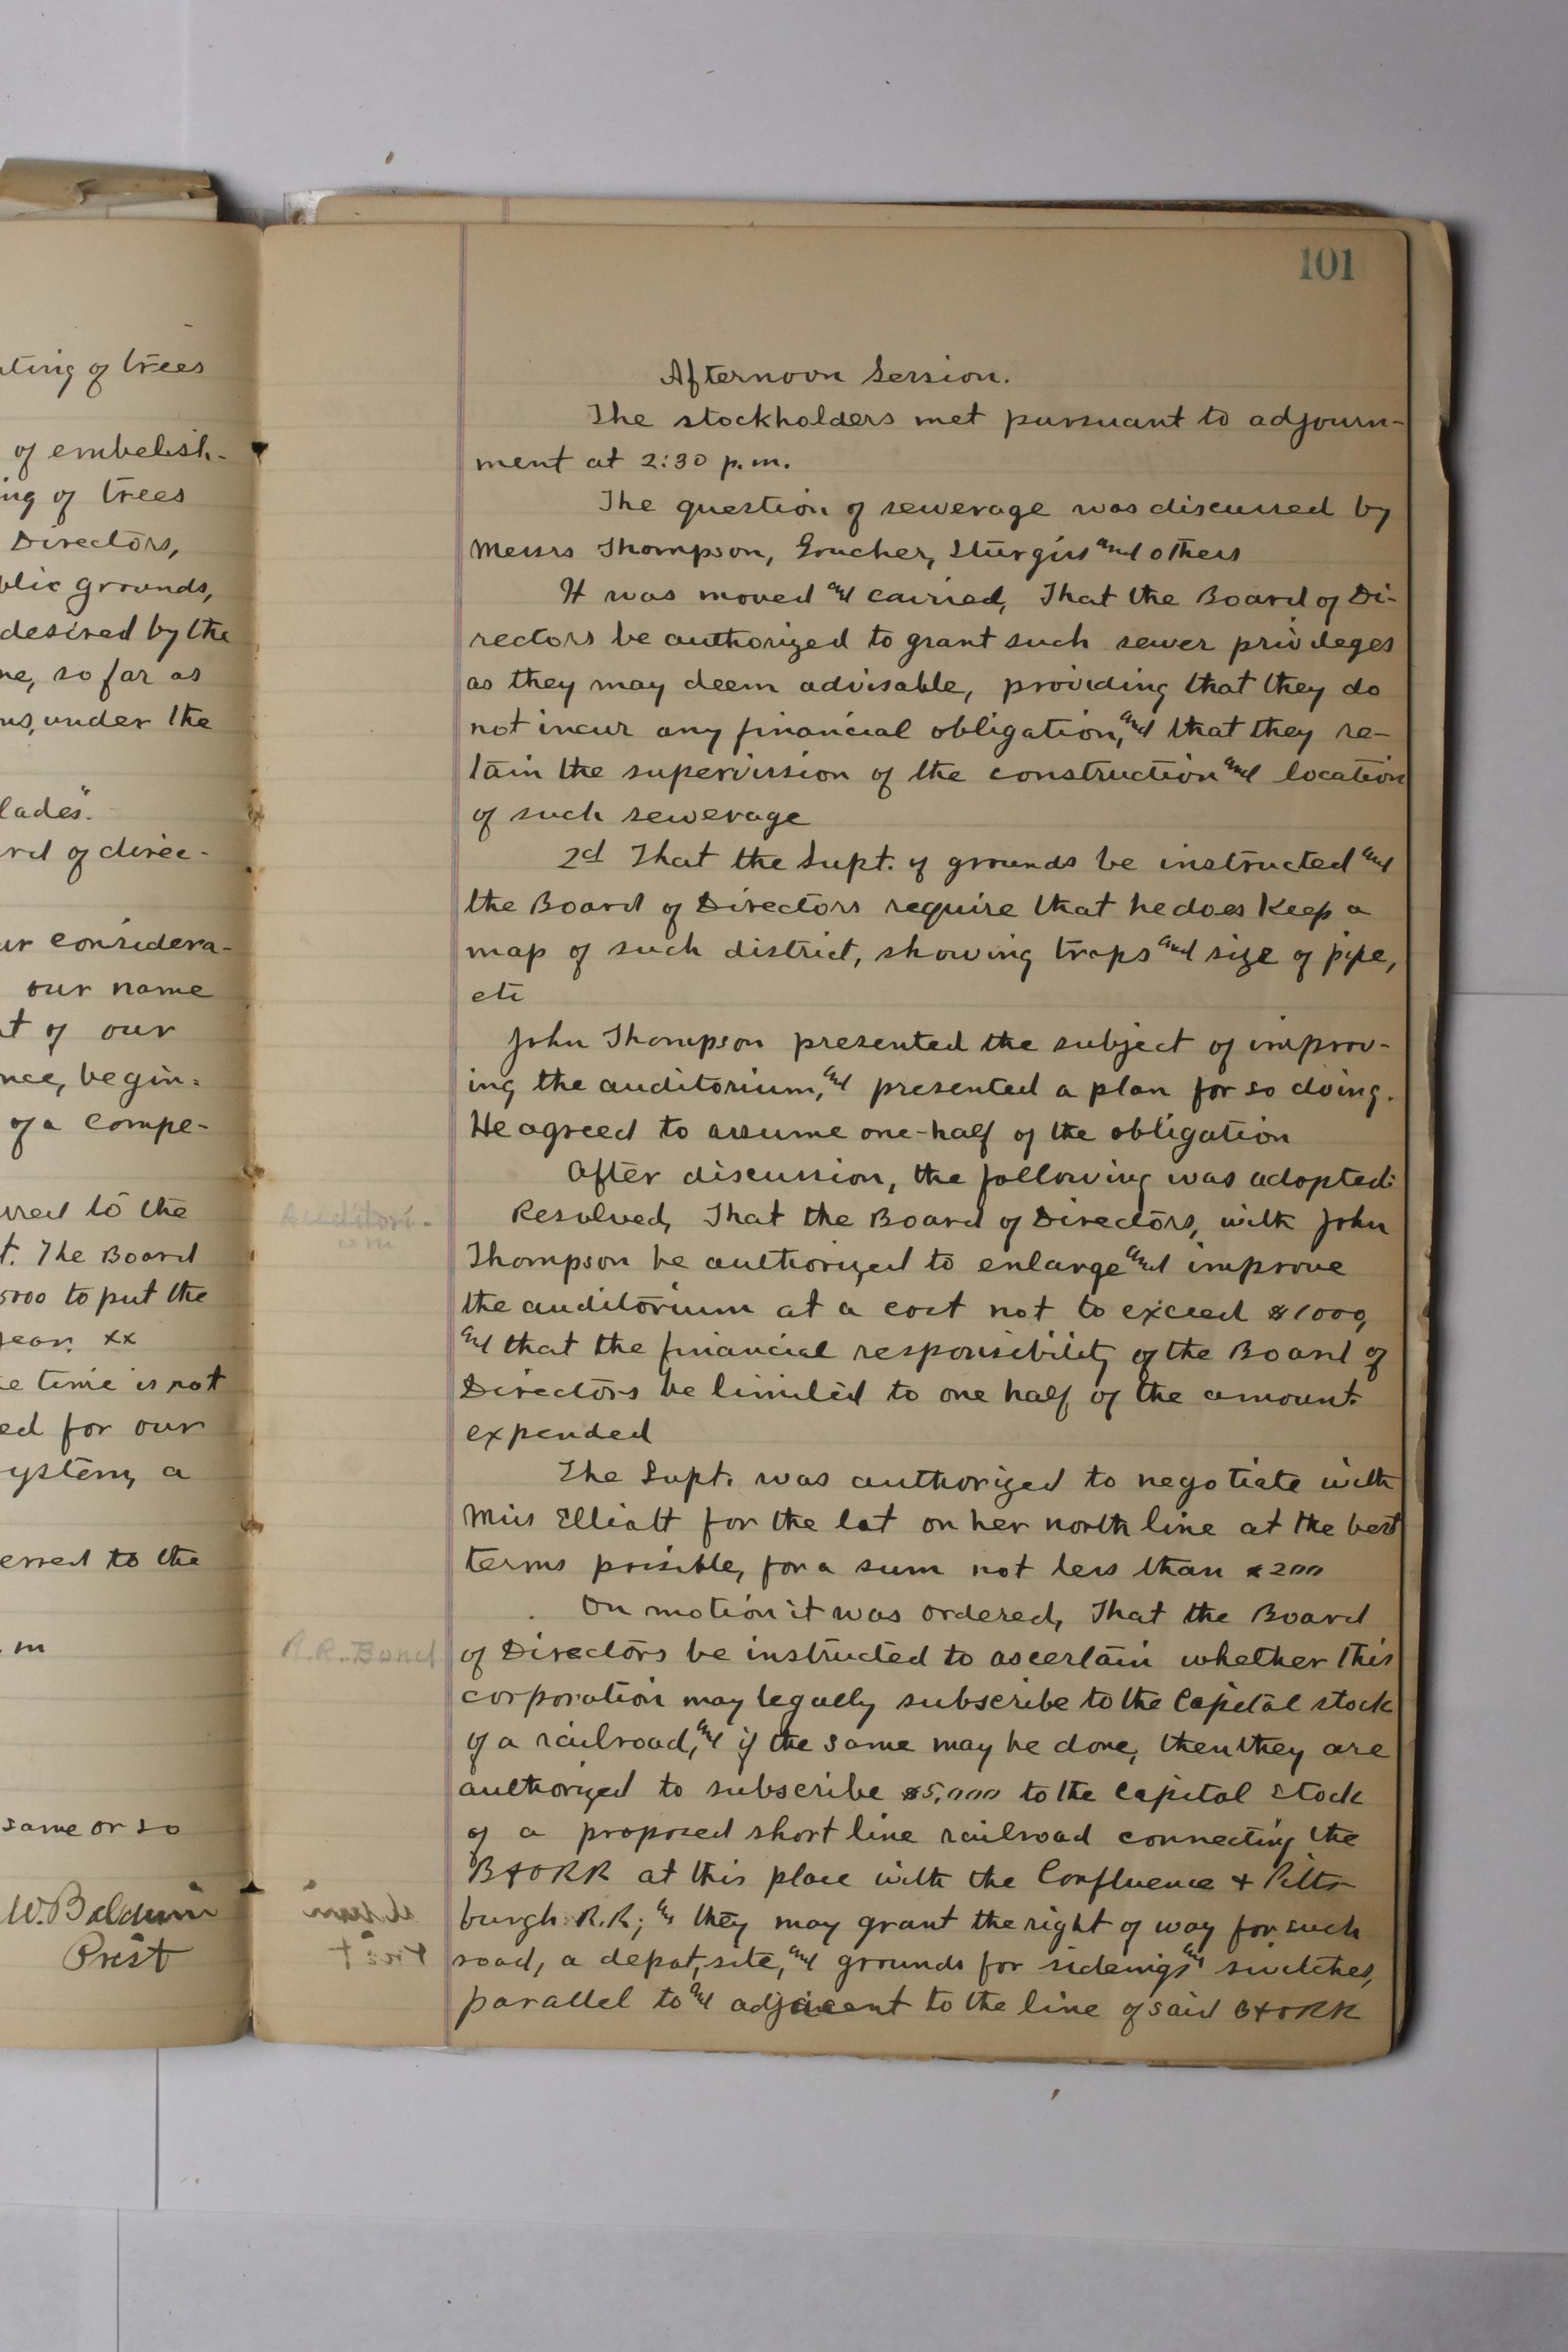 ting of trees
of embelish-
ing of trees
Directors,
blic grounds,
desired by the
me, so far as
ns, under the
lades".
rd of direc-
ur considera-
our name
t of our
nce, begin-
of a compe-
rred to the
t. The Board
5000 to put the
year. xx
e time is not
ed for our
ystem, a
erred to the
. m
same or so
W. Baldwin
Prest
101
Afternoon Session.
The stockholders met pursuant to adjourn-
ment at 2:30 p.m.
The question of sewerage was discussed by
Messrs Thompson, Goucher, Sturgiss and others
It was moved and carried, That the Board of Di-
rectors be authorized to grant such sewer privileges
as they may deem advisable, providing that they do
not incur any financial obligation, and that they re-
tain the supervission of the construction and location
of such sewerage
2d That the Supt. of grounds be instructed and
the Board of Directors require that he does keep a
map of such district, showing traps and size of pipe,
etc
John Thompson presented the subject of improv-
ing the auditorium, and presented a plan for so doing.
He agreed to assume one-half of the obligation
After discussion, the following was adopted:
Auditori-
um
Resolved, That the Board of Directors, with John
Thompson be authorized to enlarge and improve
the auditorium at a cost not to exceed $1000,
and that the financial responsibility of the Board of
Directors be limited to one half of the amount
expended
The Supt. was authorized to negotiate with
Miss Elliott for the lot on her north line at the best
terms possible, for a sum not less than $200
On motion it was ordered, That the Board
R.R. Bond
of Directors be instructed to ascertain whether this
corporation may legally subscribe to the Capital stock
of a railroad, and if the same may be done, then they are
authorized to subscribe $5,000 to the Capital Stock
of a proposed short line railroad connecting the
B+ORR at this place with the Confluence + Pitts-
burgh R.R; and they may grant the right of way for such
road, a depot, site, and grounds for sidenings and switches,
parallel to and adjacent to the line of said B+ORR